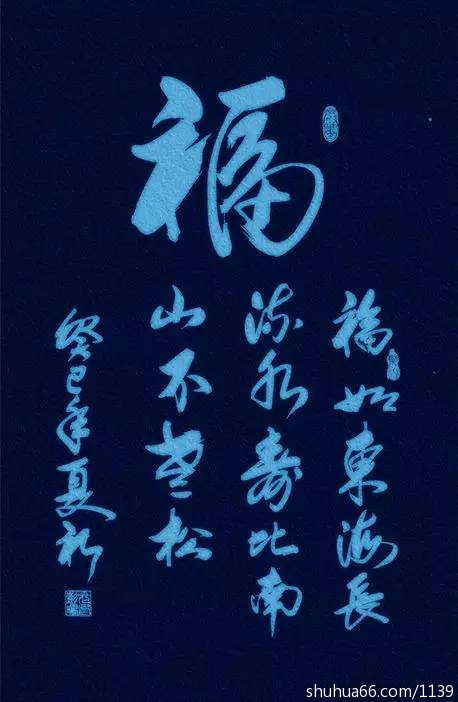 福
福如东海長
流水寿比南
山不老松
癸巳年夏新
shuhua66.com/1139